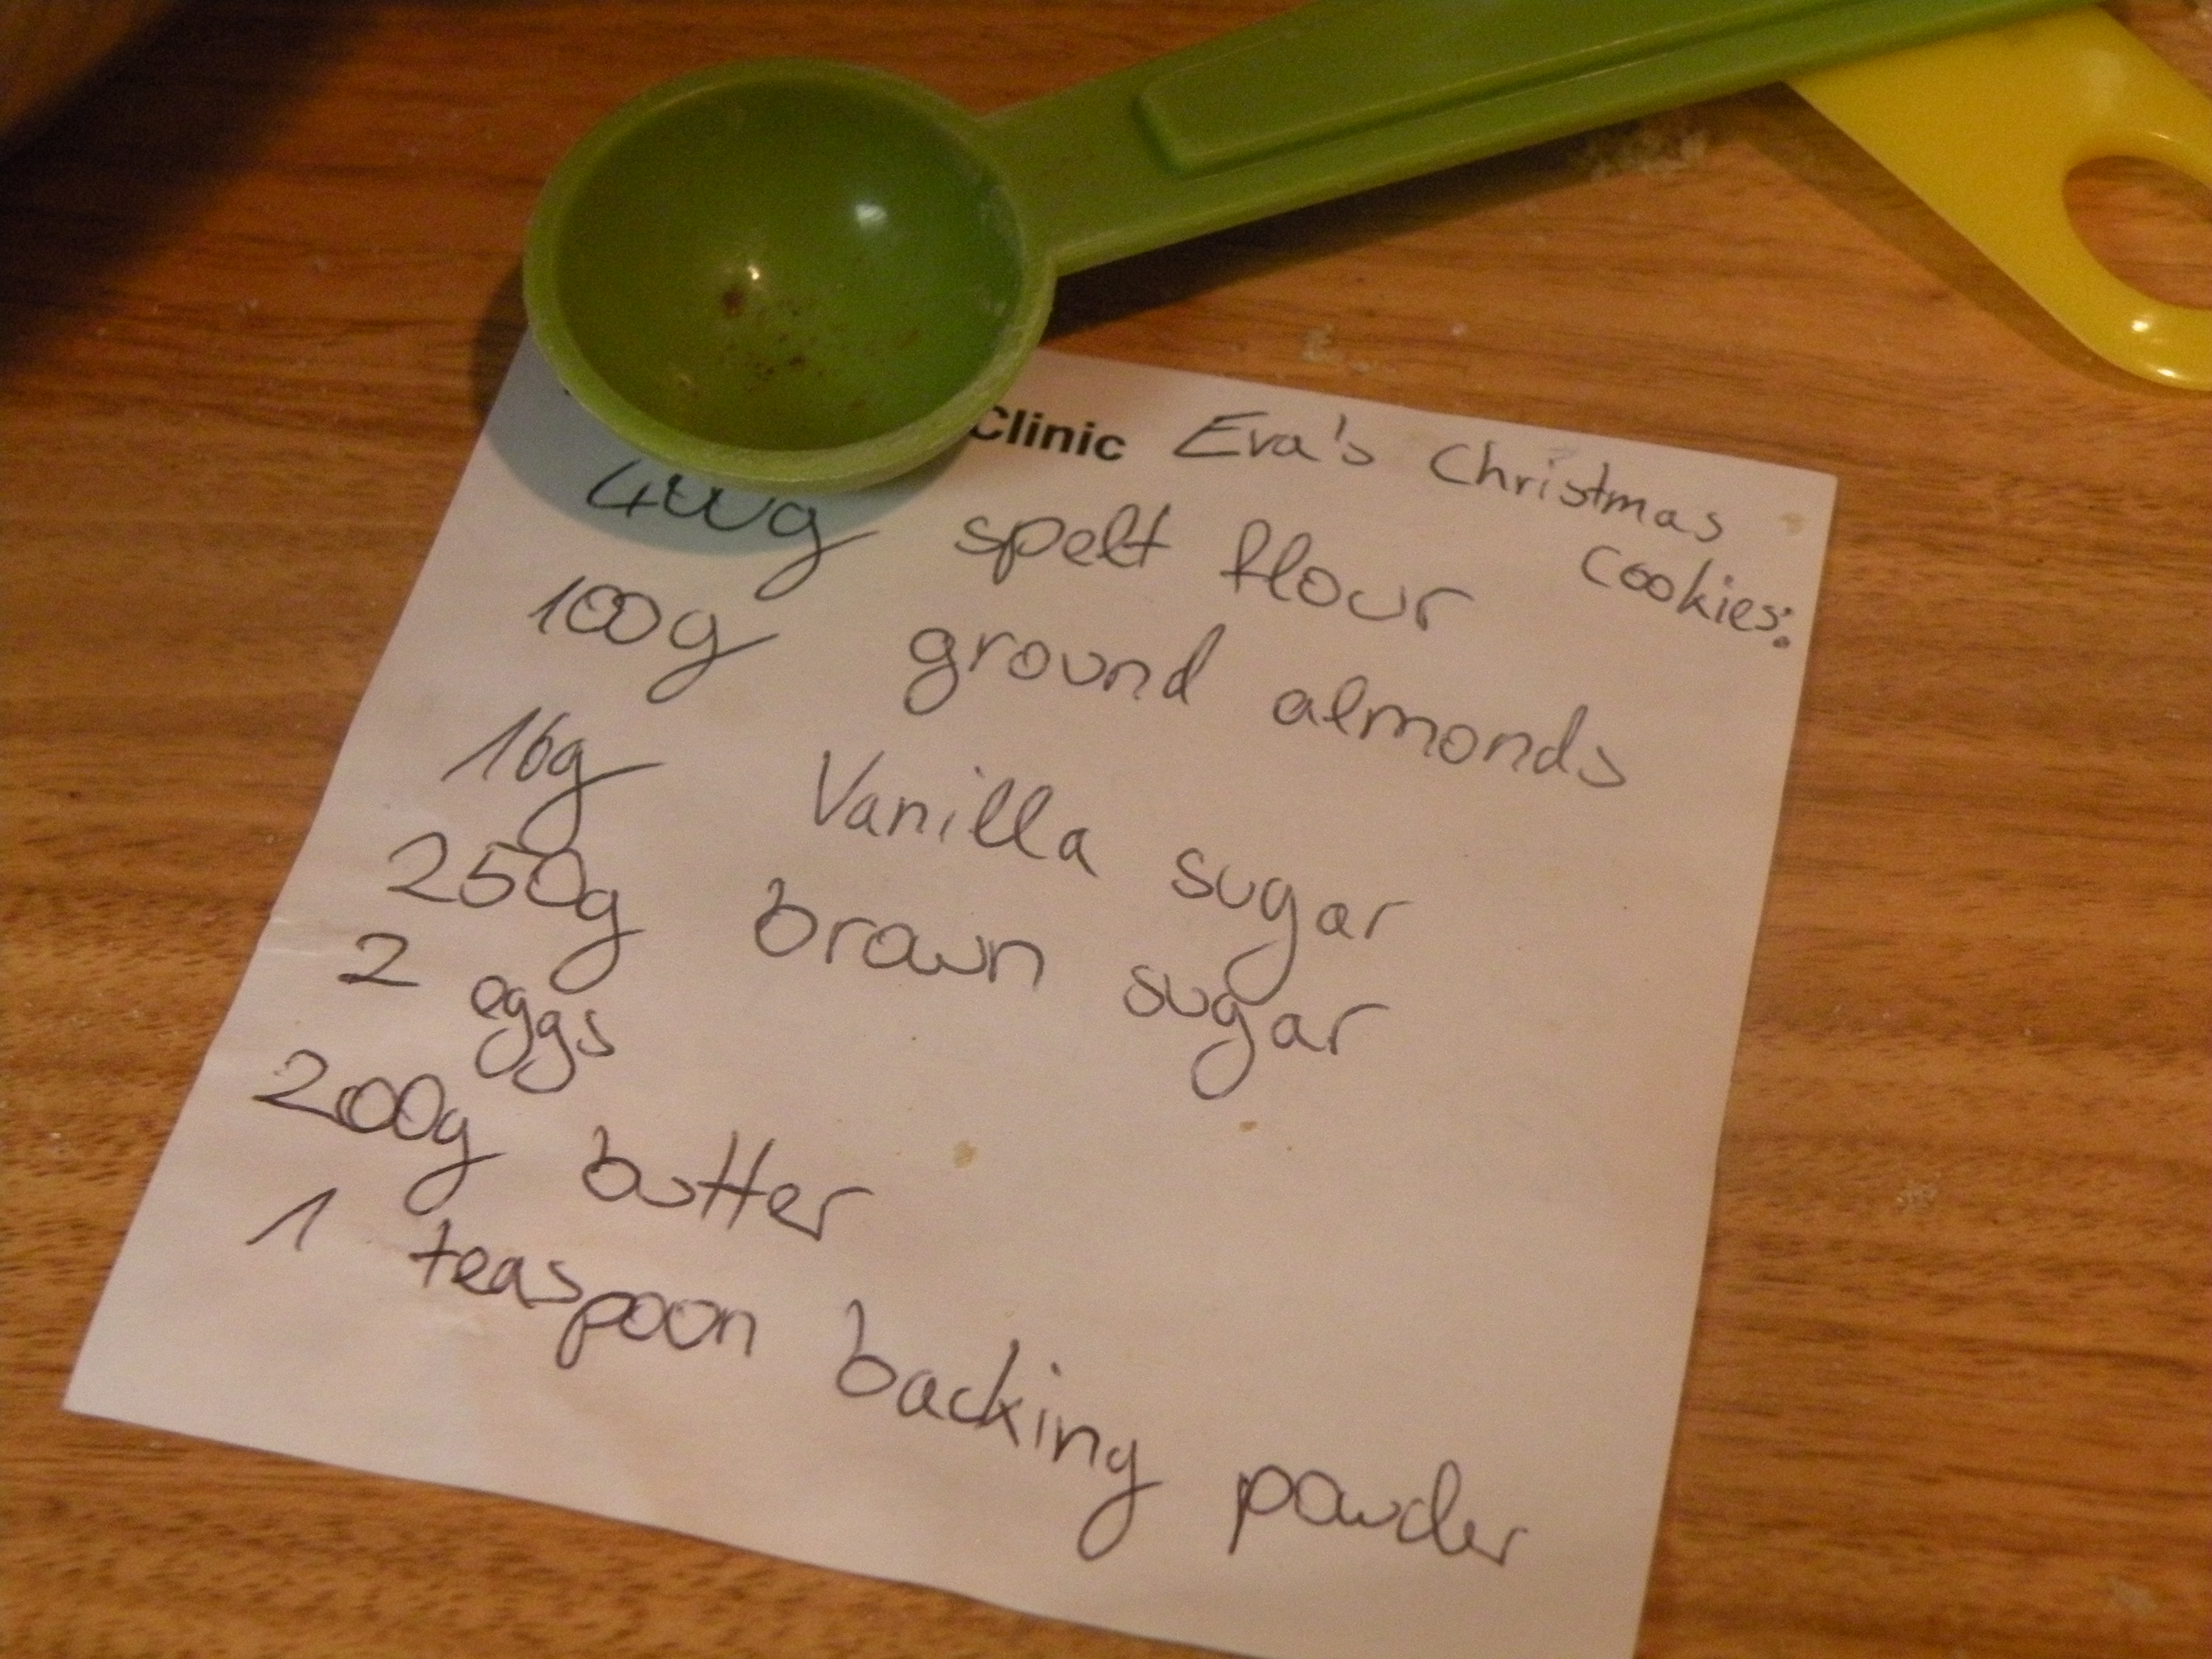 Clinic Eva's Christmas
Cookies:
400g spelt flour
100g ground almonds
16g Vanilla sugar
250g brown sugar
2 eggs
200g butter
1 teaspoon backing powder